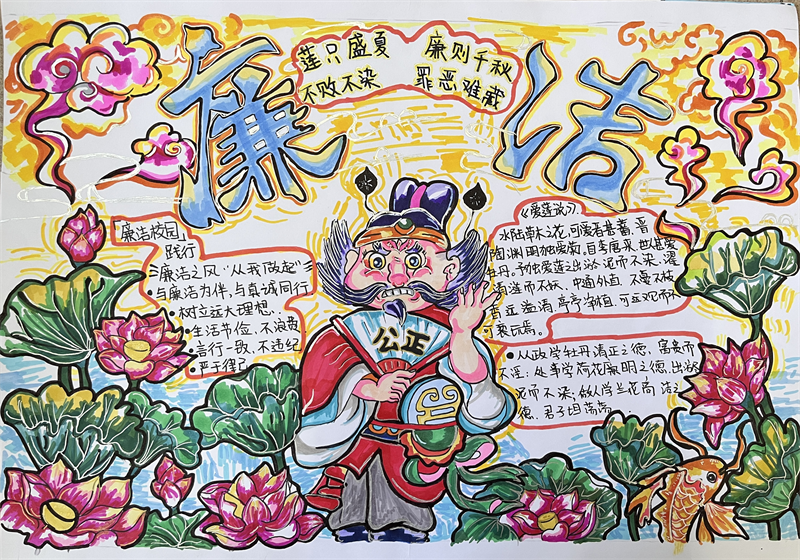 廉洁
莲只盛夏
不败不染
廉则千秋
罪恶难藏
「廉洁校园」
践行
廉洁之风"从我做起"
·与廉洁为伴,与真诚同行
·树立远大理想.
·生活节俭,不浪费
·言行一致,不违纪
·严于律己
公正
《爱莲说》
水陆草木之花,可爱者甚蕃,晋
陶渊明独爱菊。自李唐来,世人甚爱
牡丹。予独爱莲之出淤泥而不染,濯
清涟而不妖,中通外直,不蔓不枝
香远益清,亭亭净植,可远观而不
可亵玩焉。
·从政学牡丹清正之德,富贵而
不淫;处事学荷花淑明之德,出淤
泥而不染,做人学兰花高洁之
德,君子坦荡荡